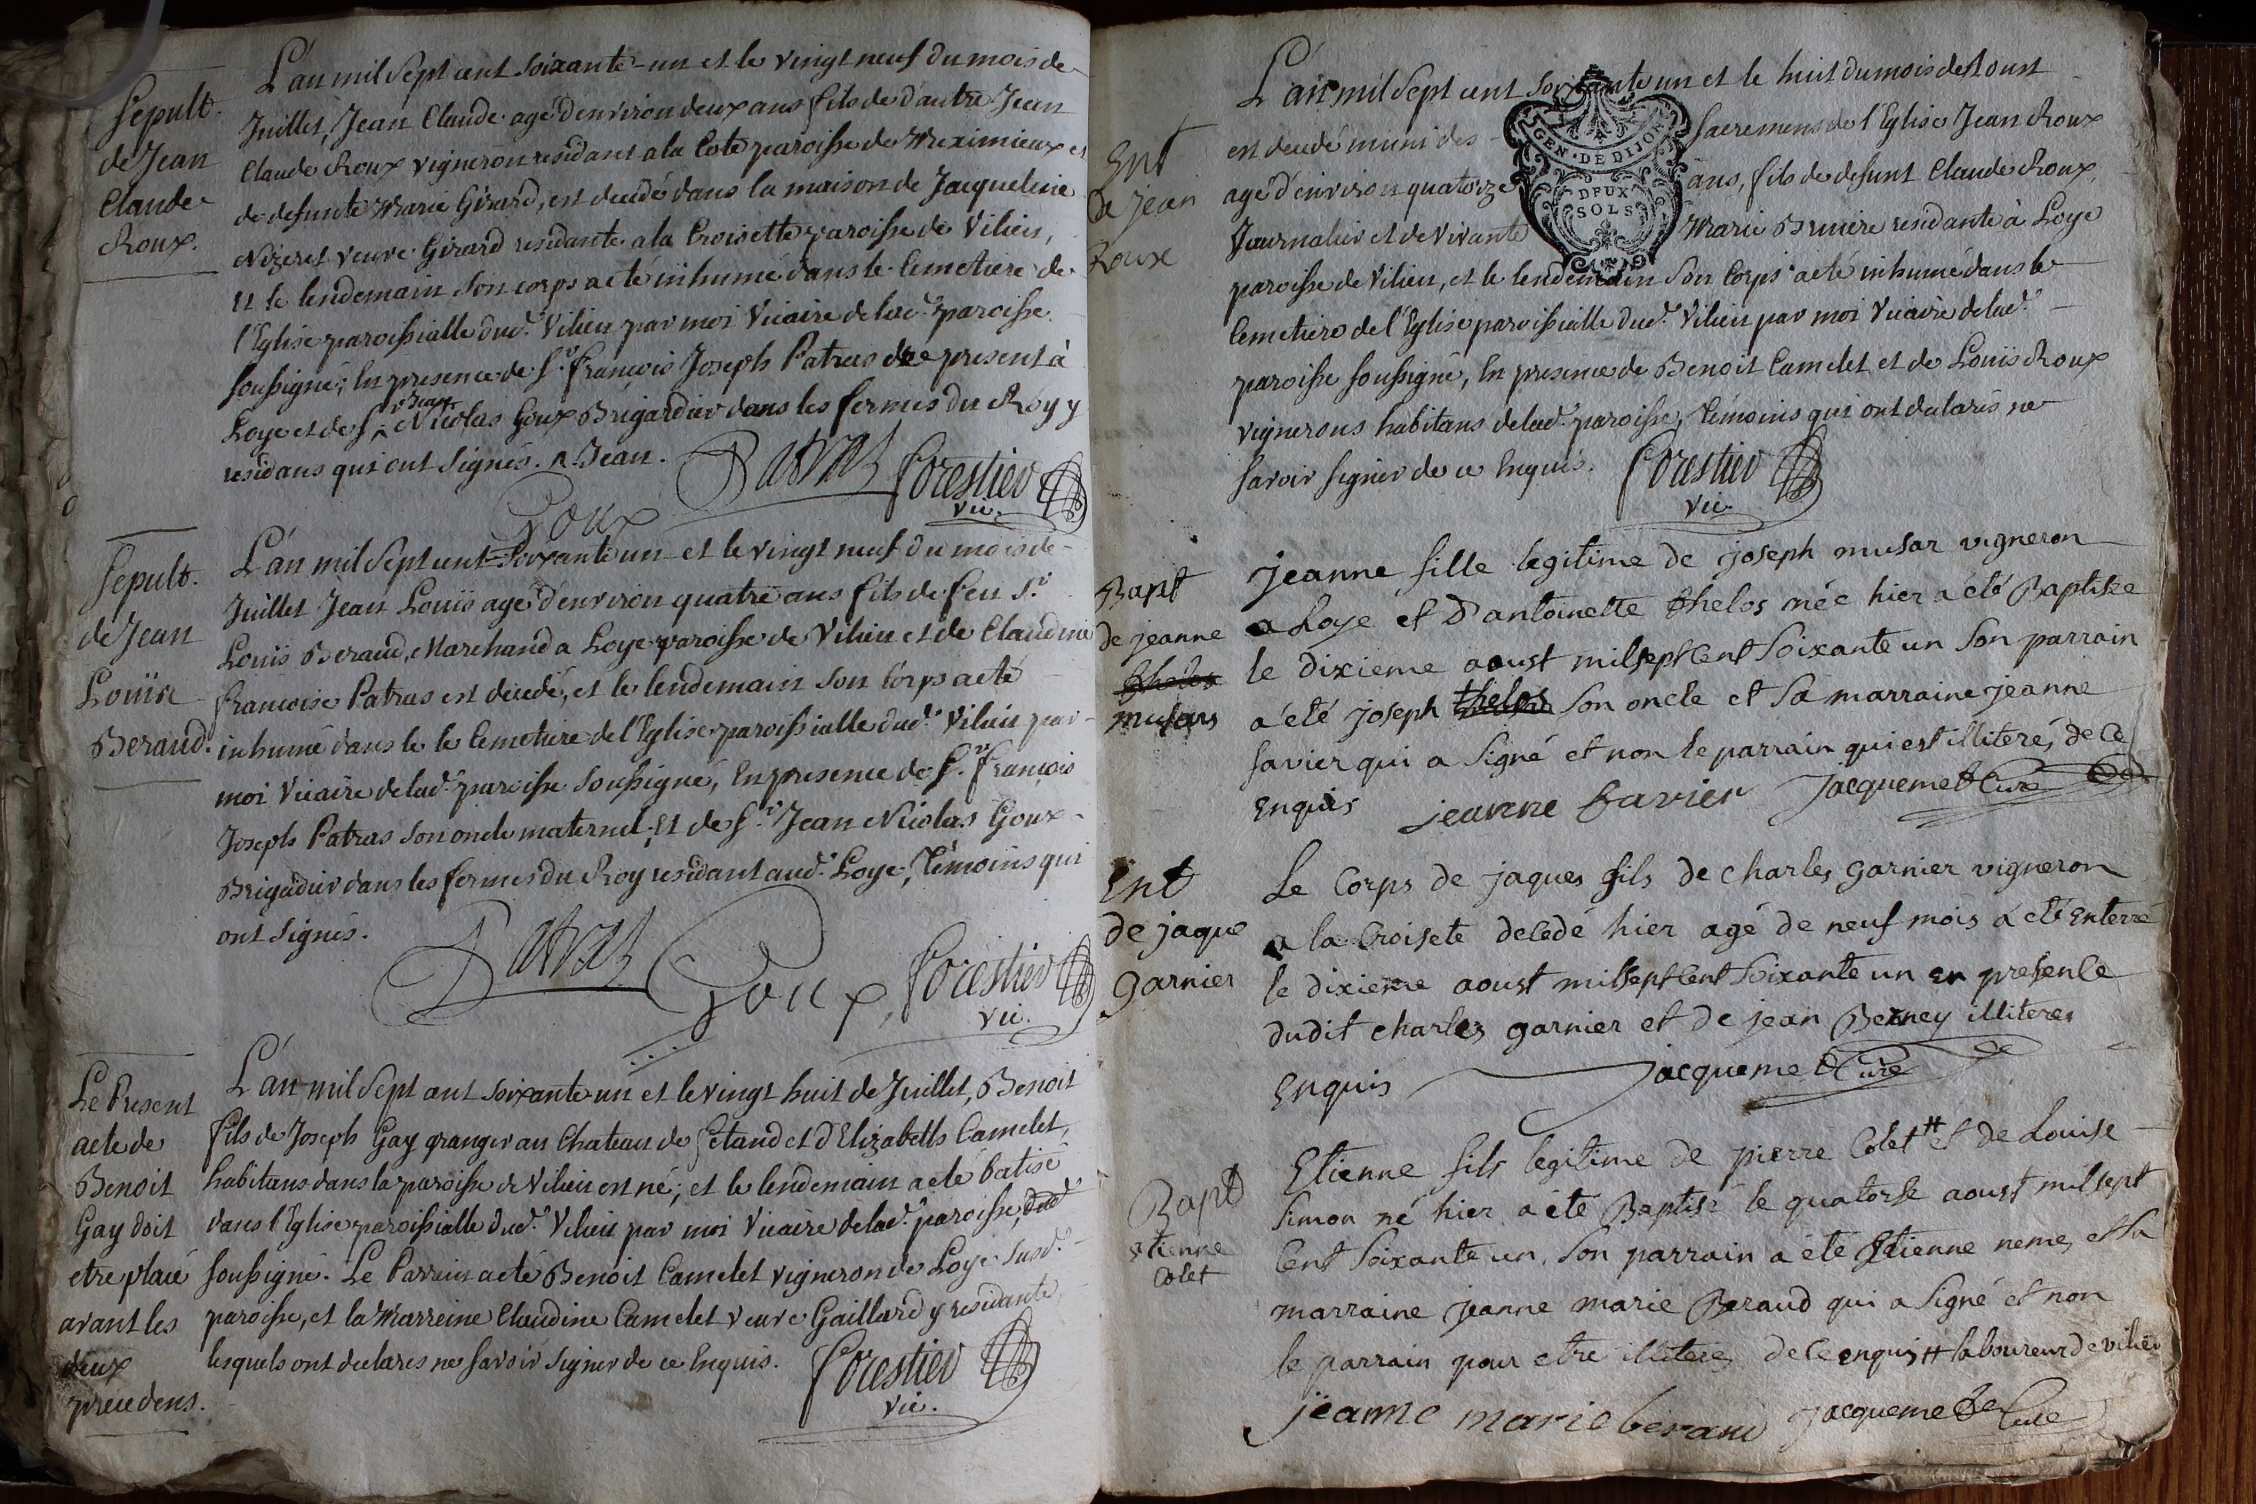 Sepult.
de Jean
Claude
Roux.
L'an mil Sept cent soixante-un et le vingt neuf du mois de
Juillet, Jean Claude agé d'environ deux ans fils de d'autre Jean
Claude Roux vigneron residant a la Cote paroisse de Meximieux et
de defunte Marie Girard, est decedé dans la maison de Jacqueline
Nizeret veuve Girard residante a la Croisette paroisse de Vilieu,
Et le lendemain son corps a eté inhumé dans le Cemetiere de
l'Eglise paroissialle dud.t Vilieu par moi Vicaire de lad.e paroisse
soussigné; En presence de S.r François Joseph Patras de present à
Loye et de S.r Jean Nicolas Goux Brigardier dans les fermes du Roy y
residans qui ont signés. n. Jean.
Patras Forestier
Goux vic.
Sepult.
de Jean
Louïs
Beraud.
L'an mil Sept cent Soixante un et le vingt neuf du mois de
Juillet Jean Louïs agé d'environ quatre ans fils de feu S.r
Louïs Beraud, Marchand a Loye paroisse de Vilieu et de Claudine
françoise Patras est decedé, et le lendemain son Corps a eté
inhumé dans le le Cemetiere de l'Eglise paroissialle dud.t Vilieu par
moi Vicaire de lad.e paroisse soussigné, En presence de S.r François
Joseph Patras son oncle maternel, Et de S.r Jean Nicolas Goux
Brigadier dans les fermes du Roy residant aud.t Loye, Témoins qui
ont signés.
Patras Goux, Forestier
vic.
Le Present
acte de
Benoit
Gay doit
etre placé
avant les
deux
precedens.
L'an mil Sept cent soixante un et le vingt huit de Juillet, Benoit
fils de Joseph Gay granger au Chateau de Setand et d'Elizabeth Camelet,
habitans dans la paroisse de Vilieu est né; et le lendemain a eté batisé
dans l'Eglise paroissialle dud.t Vilieu par moi Vicaire de lad.e paroisse, dud.t
soussigné. Le Parrain a eté Benoit Camelet vigneron de Loye susd.e
paroisse, et la Marreine Claudine Camelet veuve Gaillard y residante
lesquels ont declarés ne savoir signer de ce Enquis.
Forestier
vic.
Ent
de jean
Roux
L'an mil Sept cent soixante un et le huit du mois de Aoust
est decedé muni des Sacremens de l'Eglise Jean Roux
agé d'environ quatorze ans, fils de defunt Claude Roux,
Journalier et de vivante Marie Bruniere residante à Loye
paroisse de Vilieu, et le lendemain son Corps a eté inhumé dans le
Cemetiere de l'Eglise paroissialle dud.t Vilieu par moi Vicaire de lad.e
paroisse soussigné, En presence de Benoit Camelet et de Louïs Roux
vignerons habitans de lad.e paroisse, Témoins qui ont declarés ne
savoir signer de ce Enquis. Forestier
vic.
GEN · DE DIJON
DEUX
SOLS
Bapt
de jeanne
thelos
musars
jeanne fille legitime de joseph musar vigneron
a Loye et D'antoinette thelos née hier a été Baptisee
le dixieme aoust milsept Cent Soixante un Son parrain
a été joseph thelos Son oncle et Sa marraine jeanne
favier qui a Signé et non le parrain qui est illiteré, de Ce
Enquis jeanne favier Jacquemet Curé
Ent
de jaque
garnier
Le Corps de jaques fils de charles garnier vigneron
a la Croisete decedé hier agé de neuf mois a été Enterré
le dixieme aoust milsept Cent Soixante un en presence
dudit charles garnier et de jean Berney illiteres
Enquis Jacquemet Curé
Bapt
etienne
Colet
Etienne fils legitime de pierre Colet # et de Louise
Simon né hier a été Baptisé le quatorse aoust milsept
Cent Soixante un, Son parrain a été Etienne neme, et Sa
marraine jeanne marie Beraud qui a Signé et non
le parrain pour etre illiteré, de Ce enquis # laboureur de vilieu
jeanne marie beraud Jacquemet Curé